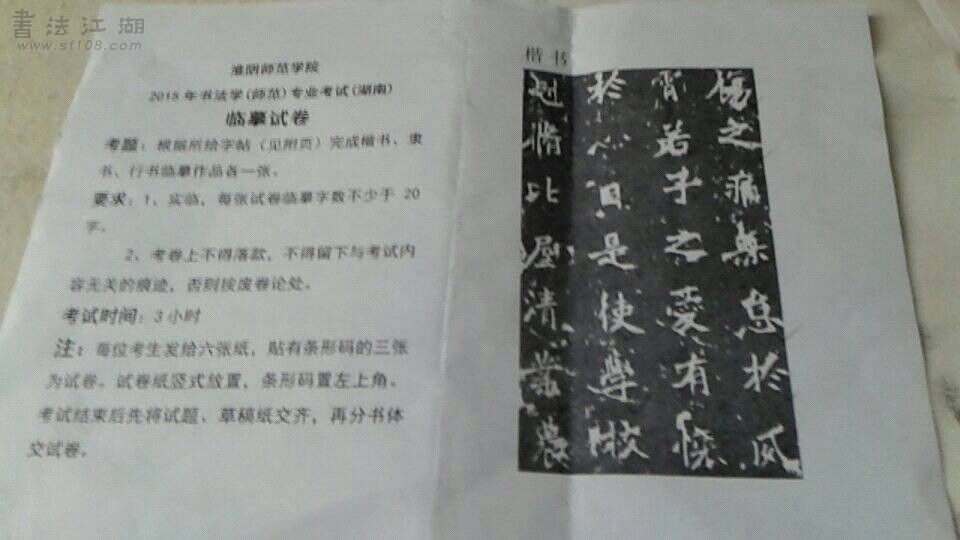 書法江湖
www.sf108.com
淮阴师范学院
2015年书法学(师范)专业考试(湖南)
临摹试卷
考题：根据所给字帖（见附页）完成楷书、隶
书、行书临摹作品各一张。
要求：1、实临，每张试卷临摹字数不少于 20
字。
2、考卷上不得落款，不得留下与考试内
容无关的痕迹，否则按废卷论处。
考试时间：3小时
注：每位考生发给六张纸，贴有条形码的三张
为试卷。试卷纸竖式放置，条形码置左上角。
考试结束后先将试题、草稿纸交齐，再分书体
交试卷。
楷书
傷之痛棄忘於风
若子之愛有懷
於心曰是使學
比屋清